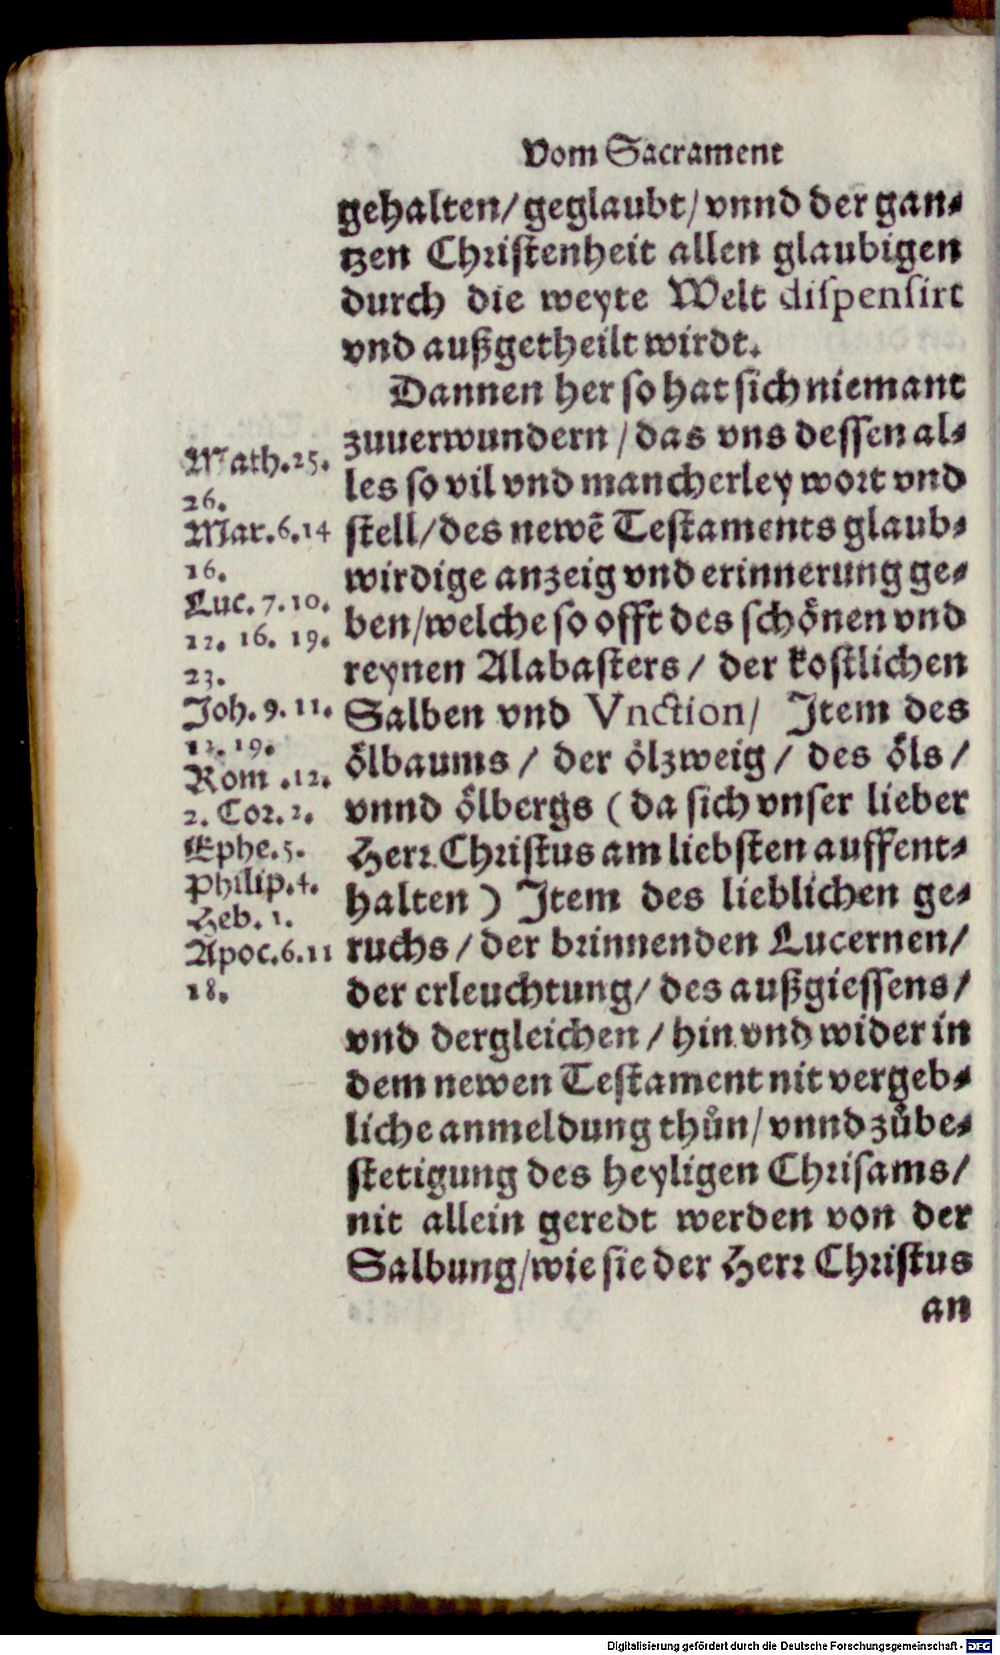 Vom Sacrament
gehalten/ geglaubt/ vnnd der gan-
tzen Christenheit allen glaubigen
durch die weyte Welt dispensirt
vnd außgetheilt wirdt.
Dannen her so hat sich niemant
zuuerwundern/ das vns dessen al-
les so vil vnd mancherley wort vnd
stell/ des newē Testaments glaub-
wirdige anzeig vnd erinnerung ge-
ben/ welche so offt des schönen vnd
reynen Alabasters/ der kostlichen
Salben vnd Vnction/ Item des
ölbaums/ der ölzweig/ des öls/
vnnd ölbergs (da sich vnser lieber
Herr Christus am liebsten auffent-
halten) Item des lieblichen ge-
ruchs/ der brinnenden Lucernen/
der erleuchtung/ des außgiessens/
vnd dergleichen/ hin vnd wider in
dem newen Testament nit vergeb-
liche anmeldung thůn/ vnnd zůbe-
stetigung des heyligen Chrisams/
nit allein geredt werden von der
Salbung/ wie sie der Herr Christus
an
Math.25.
26.
Mar.6.14
16.
Luc. 7.10.
12. 16. 19.
23.
Joh. 9. 11.
12. 19.
Rom .12.
2. Cor. 2.
Ephe.5.
Philip.4.
Heb. 1.
Apoc.6.11
18.
Digitalisierung gefördert durch die Deutsche Forschungsgemeinschaft - DFG